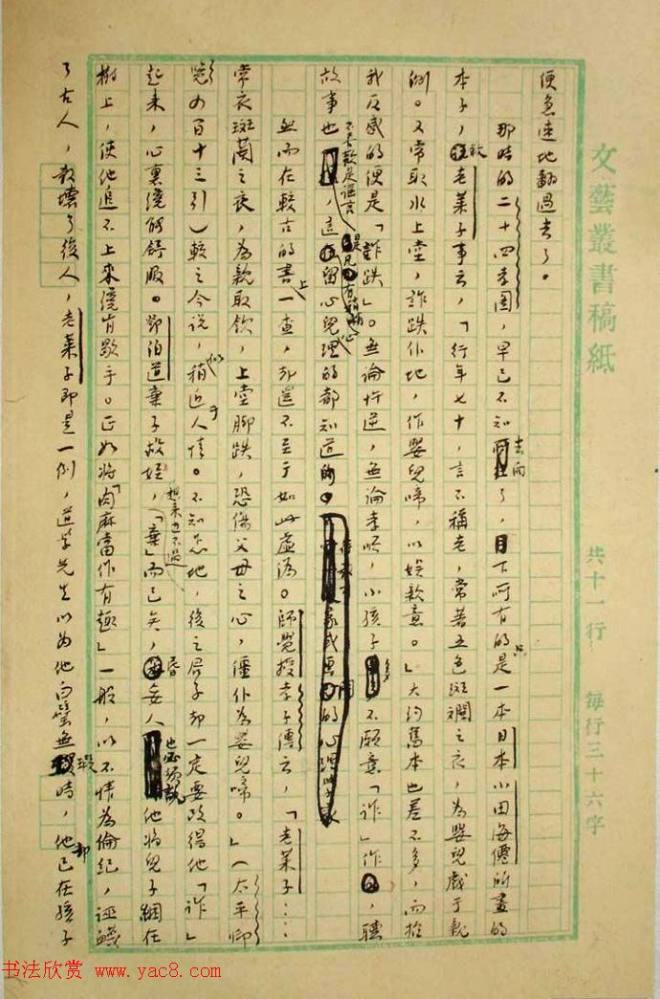 文藝叢書稿紙 共十一行 每行三十六字
便急速地翻過去了。
那時的二十四孝圖，早已不知去向了，目下所有的只是一本日本小田海僊所畫的
本子，敘老萊子事云，「行年七十，言不稱老，常著五色斑斕之衣，為嬰兒戲于親
側。又常取水上堂，詐跌仆地，作嬰兒啼，以娛親意。」大約舊本也差不多，而招
我反感的便是「詐跌」。無論忤逆，無論孝順，小孩子多不願意「詐」作，聽
故事也不喜歡是謠言，這是凡有稍稍留心兒童心理的都知道的。
然而在較古的書上一查，卻還不至于如此虛偽。師覺授孝子傳云，「老萊子……
常衣斑蘭之衣，為親取飲，上堂腳跌，恐傷父母之心，僵仆為嬰兒啼。」（太平御
覽四百十三引）較之今說，似稍近于人情。不知怎地，後之君子卻一定要改得他「詐」
起來，心裏纔能舒服。鄧伯道棄子救姪，想來也不過「棄」而已矣，昏妄人也必須說他將兒子綑在
樹上，使他追不上來纔肯歇手。正如將「肉麻當作有趣」一般，以不情為倫紀，誣蔑
了古人，教壞了後人，老萊子即是一例，道學先生以為他白璧無瑕時，他卻已在孩子
书法欣赏 www.yac8.com